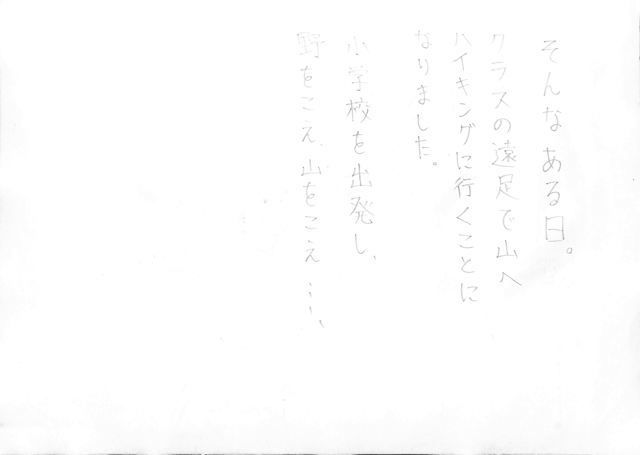 そんなある日。
クラスの遠足で山へ
ハイキングに行くことに
なりました。
小学校を出発し、
野をこえ、山をこえ……、